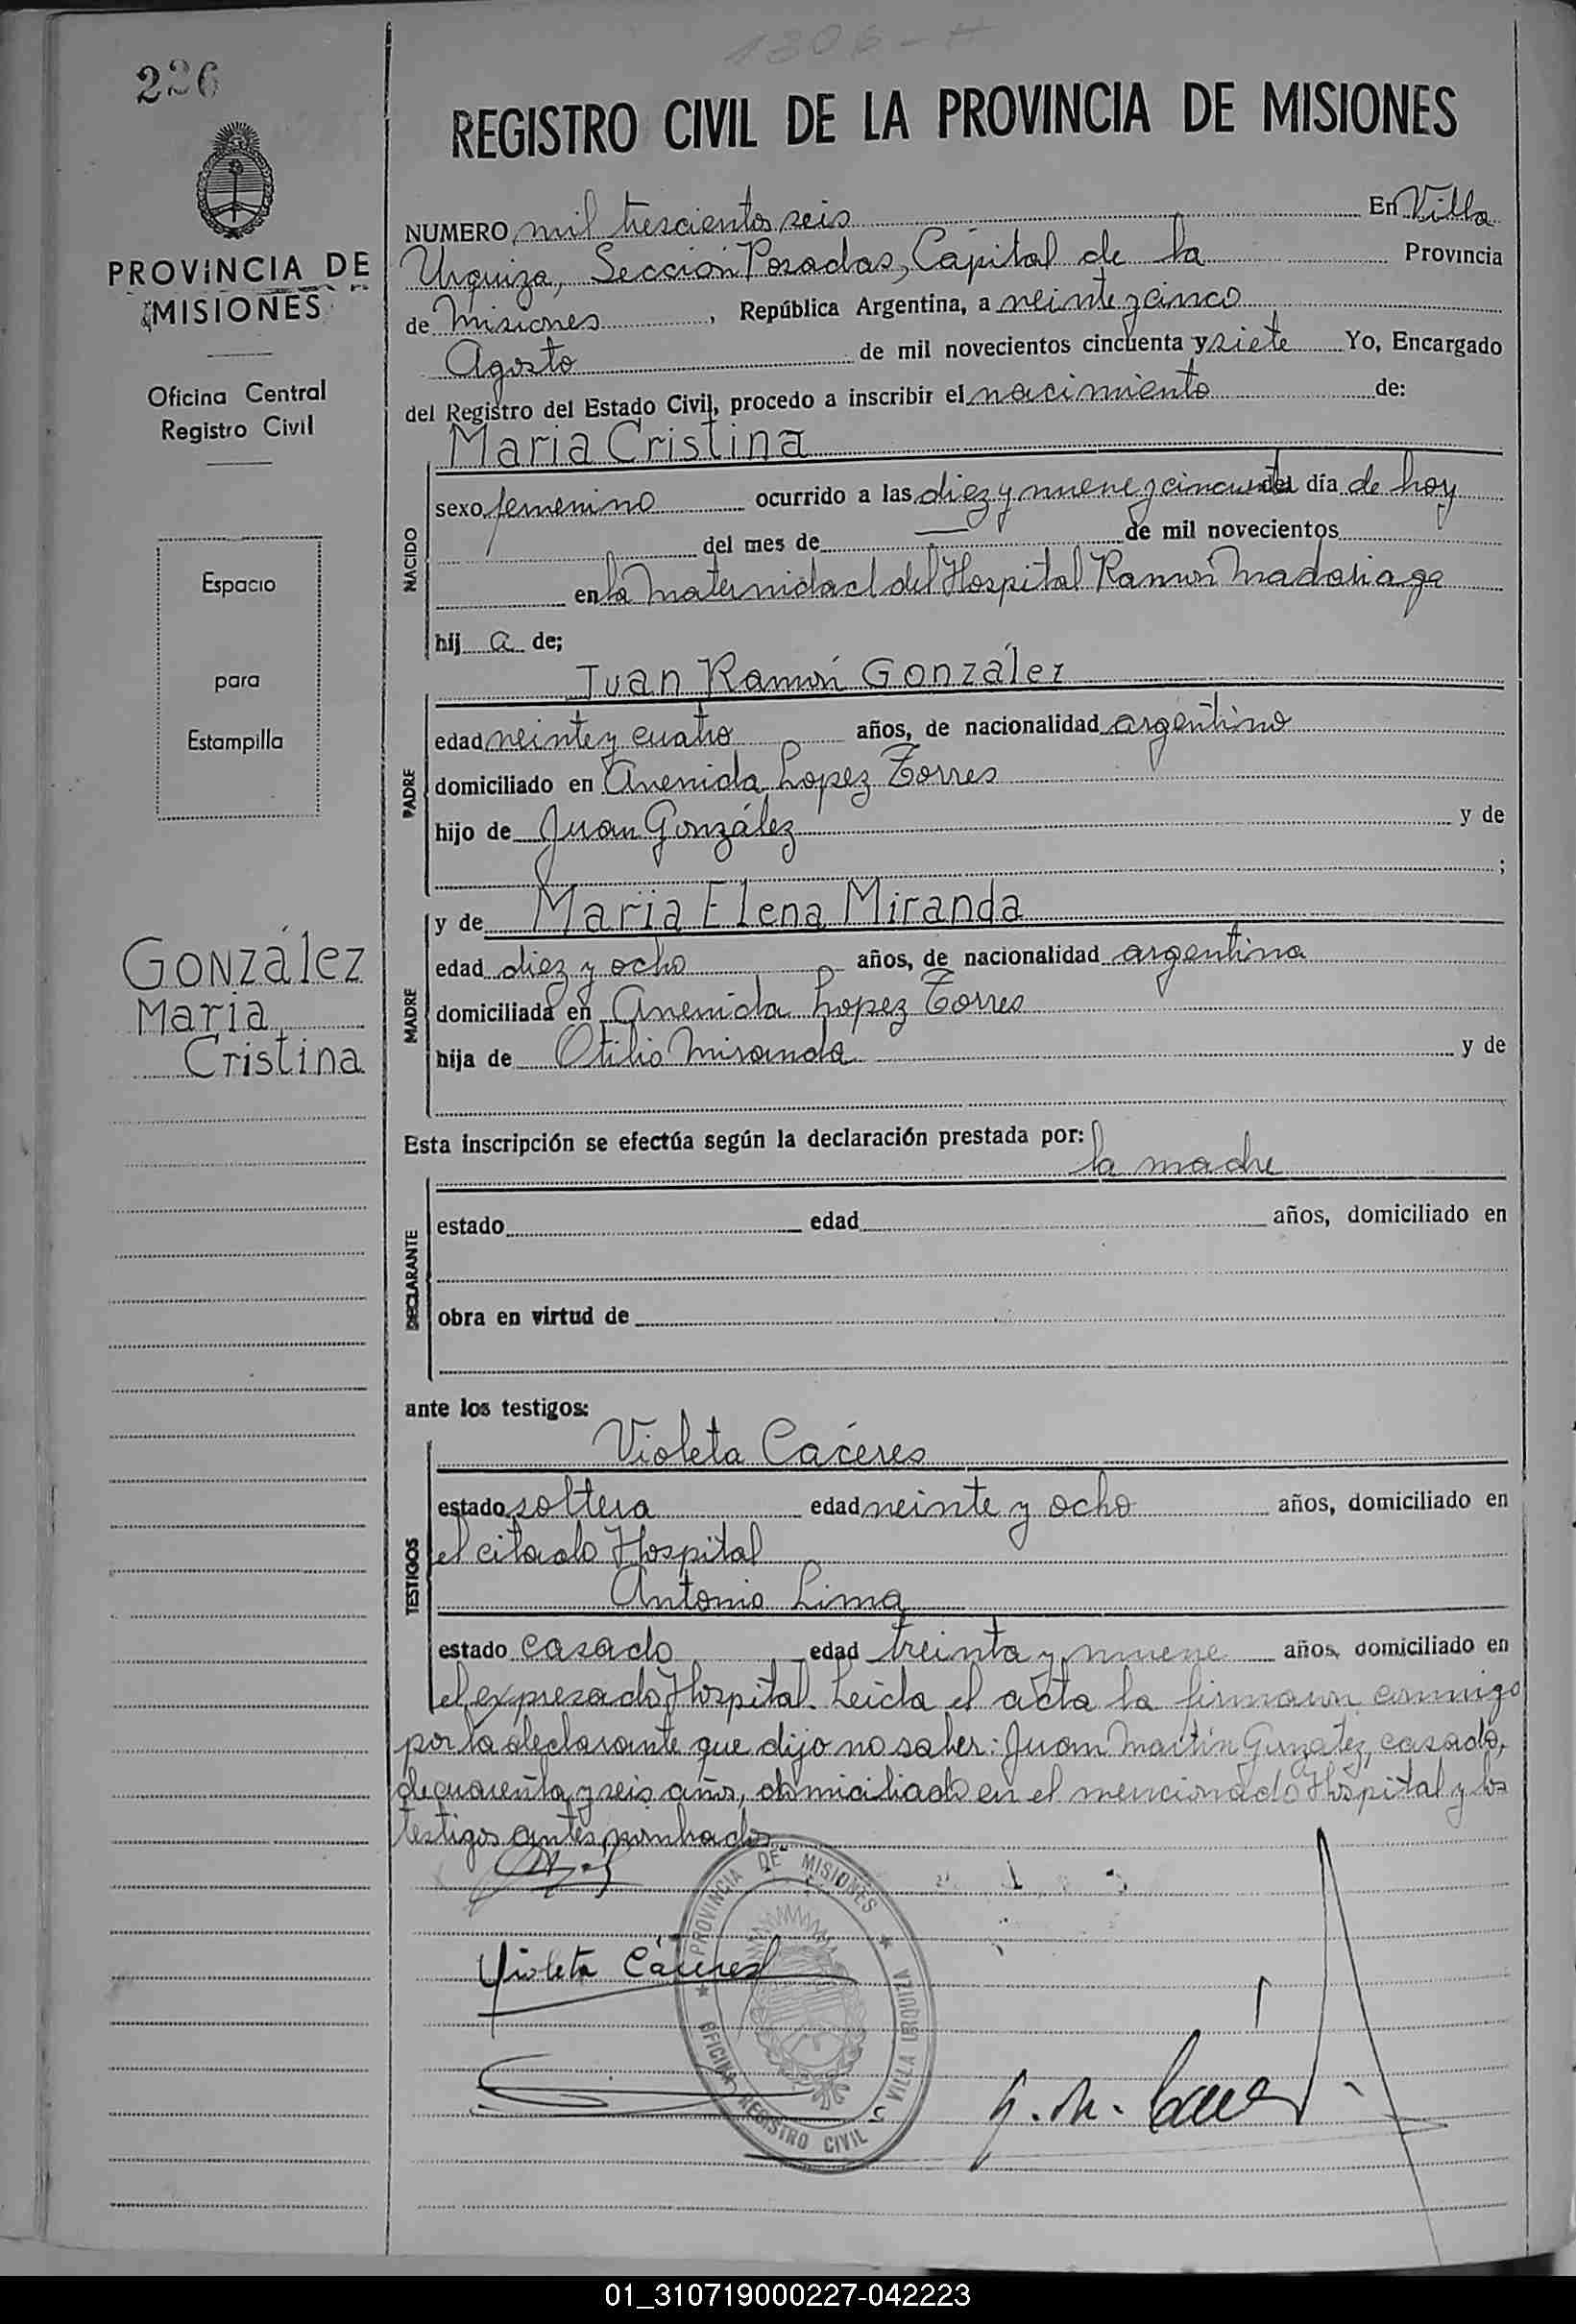 1306-H
226
REGISTRO CIVIL DE LA PROVINCIA DE MISIONES
PROVINCIA DE
MISIONES
Oficina Central
Registro Civil
Espacio
para
Estampilla
González
Maria
Cristina
NUMERO mil trescientos seis En Villa
Urquiza, Sección Posadas, Capital de la Provincia
de Misiones, República Argentina, a veinte y cinco
Agosto de mil novecientos cincuenta y siete Yo, Encargado
del Registro del Estado Civil, procedo a inscribir el nacimiento de:
Maria Cristina
NACIDO
sexo femenino ocurrido a las diez y nueve y cincuenta del día de hoy
del mes de — de mil novecientos
en la Maternidad del Hospital Ramón Madariaga
hij a de;
Juan Ramón González
PADRE
edad veinte y cuatro años, de nacionalidad argentino
domiciliado en Avenida Lopez Torres
hijo de Juan González y de
;
y de Maria Elena Miranda
MADRE
edad diez y ocho años, de nacionalidad argentina
domiciliada en Avenida Lopez Torres
hija de Otilio Miranda y de
Esta inscripción se efectúa según la declaración prestada por:
la madre
DECLARANTE
estado edad años, domiciliado en
obra en virtud de
ante los testigos:
Violeta Cáceres
TESTIGOS
estado soltera edad veinte y ocho años, domiciliado en
el citado Hospital
Antonio Lima
estado casado edad treinta y nueve años, domiciliado en
el expresado Hospital. Leída el acta la firmaron conmigo
por la declarante que dijo no saber: Juan Martín González, casado,
de cuarenta y seis años, domiciliado en el mencionado Hospital y los
testigos antes nombrados
PROVINCIA DE MISIONES
OFICINA REGISTRO CIVIL VILLA URQUIZA
Violeta Cáceres
01_310719000227-042223